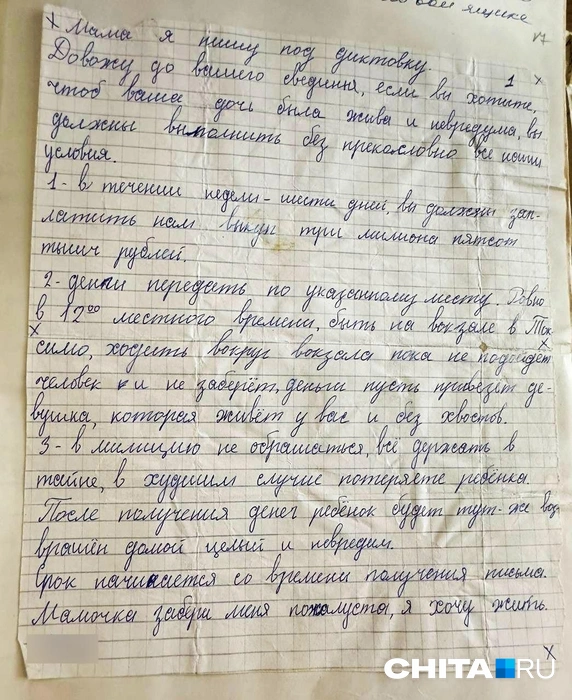 вой ящика
17
Мама я пишу под диктовку
1
Довожу до вашего свединия, если вы хотите,
чтоб ваша дочь была жива и невредима, вы
должны выполнить без прекословно все наши
условия.
1- в течении недели - шести дней, вы должны зап-
латить нам выкуп три милиона пятсот
тысич рублей.
2- деньги передать по указанному месту. Ровно
в 12⁰⁰ местного времени, быть на вокзале в Ток-
симо, ходить вокруг вокзала пока не подойдёт
человек и не заберёт, деньги пусть привезёт де-
вушка, которая живёт у вас и без хвостов.
3- в милицию не обращаться, всё держать в
тайне, в худшим случие потеряете ребёнка.
После получения денег ребёнок будет тут-же воз-
вращён домой целый и невредим.
Срок начинается со времени получения письма.
Мамочка забери меня пожалуста, я хочу жить.
CHITA.RU